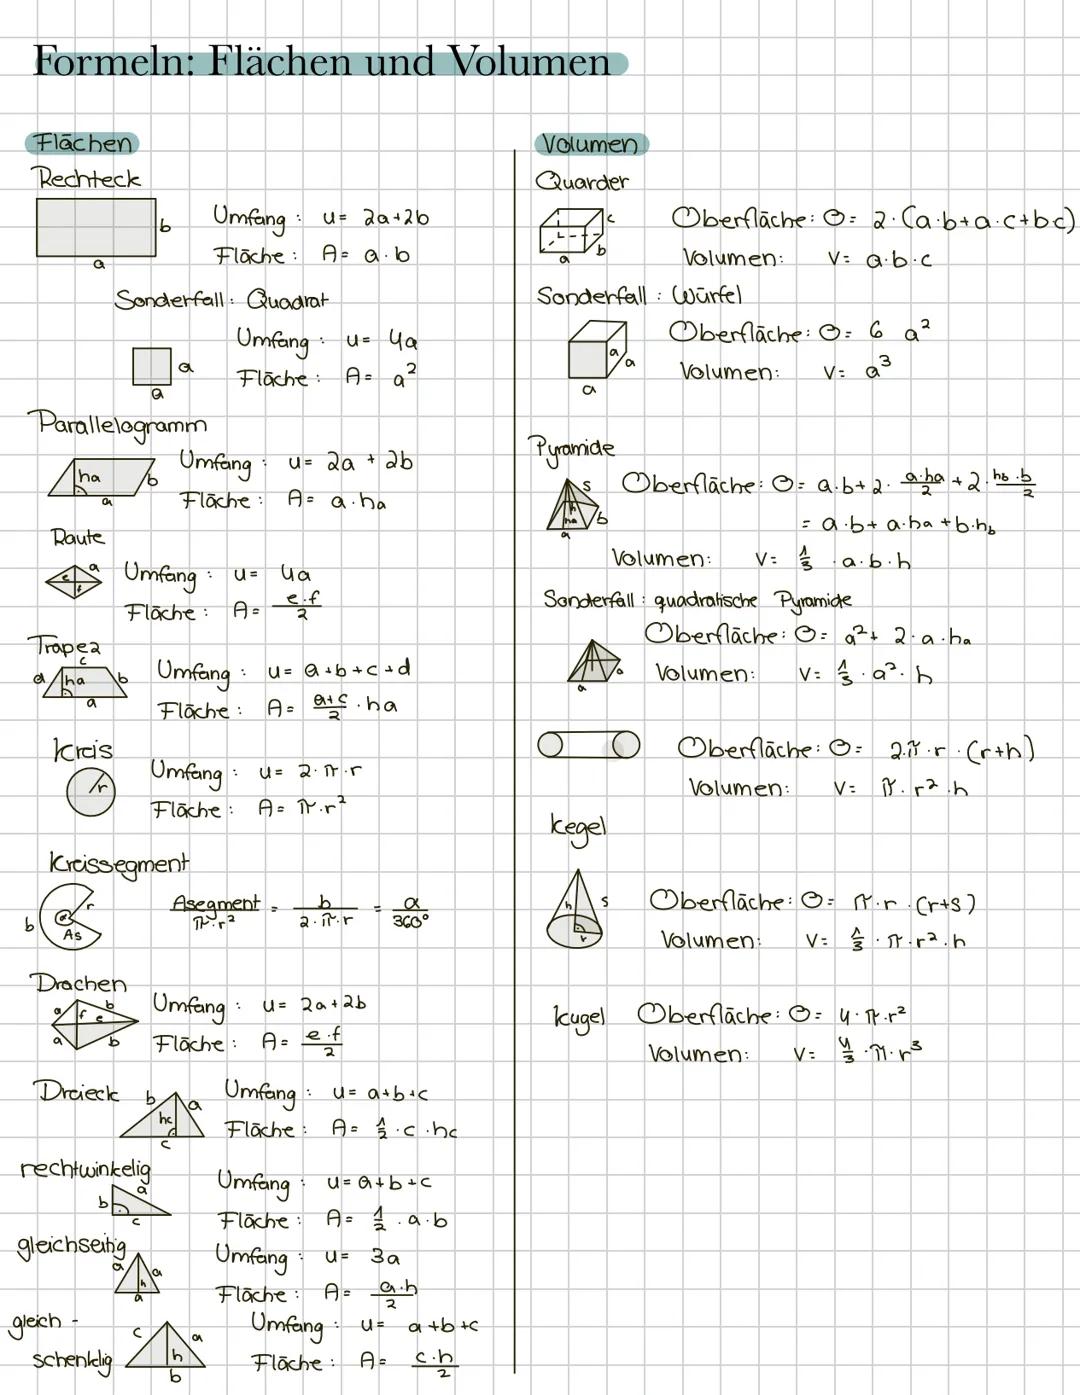 Formeln: Flächen und Volumen
Flächen
Rechteck
b
a
Umfang : u= 2a+2b
Fläche : A= a·b
Sonderfall: Quadrat
a
a
Umfang : u= 4a
Fläche : A= a²
Parallelogramm
ha
b
a
Umfang : u= 2a + 2b
Fläche : A= a·ha
Raute
a
e
f
Umfang : u= 4a
Fläche : A= e·f/2
Trapez
c
d
ha
b
a
Umfang : u= a+b+c+d
Fläche : A= a+c/2 · ha
Kreis
r
Umfang : u= 2·π·r
Fläche : A= π·r²
Kreissegment
r
α
b
As
Asegment/π·r² = b/2·π·r = α/360°
Drachen
a
b
f
e
a
b
Umfang : u= 2a+2b
Fläche : A= e·f/2
Dreieck
b
a
hc
c
Umfang : u= a+b+c
Fläche : A= 1/2 · c · hc
rechtwinkelig
a
b
c
Umfang : u= a+b+c
Fläche : A= 1/2 · a·b
gleichseitig
a
a
h
a
Umfang : u= 3a
Fläche : A= a·h/2
gleich-
schenklig
c
a
h
b
Umfang : u= a+b+c
Fläche : A= c·h/2
Volumen
Quarder
c
b
a
Oberfläche: O= 2·(a·b+a·c+bc)
Volumen: V= a·b·c
Sonderfall : Würfel
a
a
a
Oberfläche: O= 6 a²
Volumen: V= a³
Pyramide
s
h
ha
b
a
Oberfläche: O= a·b+2· a·ha/2 +2· hb·b/2
= a·b+ a·ha +b·hb
Volumen: V= 1/3 · a·b·h
Sonderfall : quadratische Pyramide
a
a
Oberfläche: O= a²+ 2·a·ha
Volumen: V= 1/3 · a²·h
Oberfläche: O= 2·π·r·(r+h)
Volumen: V= π·r²·h
Kegel
h
s
r
Oberfläche: O= π·r·(r+s)
Volumen: V= 1/3 · π·r²·h
Kugel
Oberfläche: O= 4·π·r²
Volumen: V= 4/3 ·π·r³